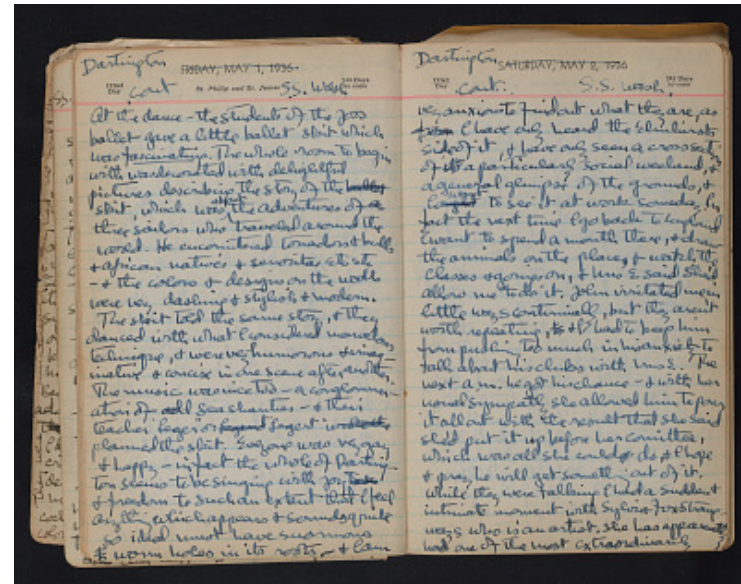 Dartington
FRIDAY, MAY 1, 1936
cont St. Philip and St. James S.S. Wash
At the dance - the students of the Joos
ballet give a little ballet skit which
was fascinating. The whole room to begin
with was decorated with delightful
pictures describing the story of the ballet
skit, which was the adventures of a
three sailors who traveled around the
world. He encountered tornados & bulls
& african natives & senoritas etc etc
- & the colors & designs on the walls
were very dashing & stylish & modern.
The skit told the same story, & they
danced with what I considered marvelous
technique, & were very humorous & imag-
inative & concise in one scene after another.
The music was nice too - a conglomer-
ation of old sea chanties - & their
teacher
planned the skit. Everyone was very gay
& happy - in fact the whole of Darting-
ton seems to be singing with joy
& freedom to such an extent that I feel
anything which appears & sounds quite
so ideal must have enormous
& worm holes in its roots - & I am
Dartington
SATURDAY, MAY 2, 1936
cont. S.S. Wash
very anxious to find out what they are, as
I have only heard the Elmhirsts
side of it, & have only seen a cross sect.
of a particularly social weekend, &
a general glimpse of the grounds, &
to see it at work someday. In
fact the next time I go back to England
I want to spend a month there, & draw
the animals on the place, & watch the
classes & goings on, & Mrs E. said she'd
allow me to do it. John irritated me in
little ways continually, but they aren't
worth repeating, & I had to keep him
from pushing too much in his anxiety to
talk about his clubs with Mrs E. The
next a.m. he got his chance - & with her
usual sympathy she allowed him to pour
it all out with the result that she said
she'd put it up before her comittee,
which was all she could do & I hope
& pray he will get something out of it.
While they were talking I had a sudden
intimate moment with Sylvia Fox Strang-
ways who is an artist, she has appeared
had one of the most extraordinarily